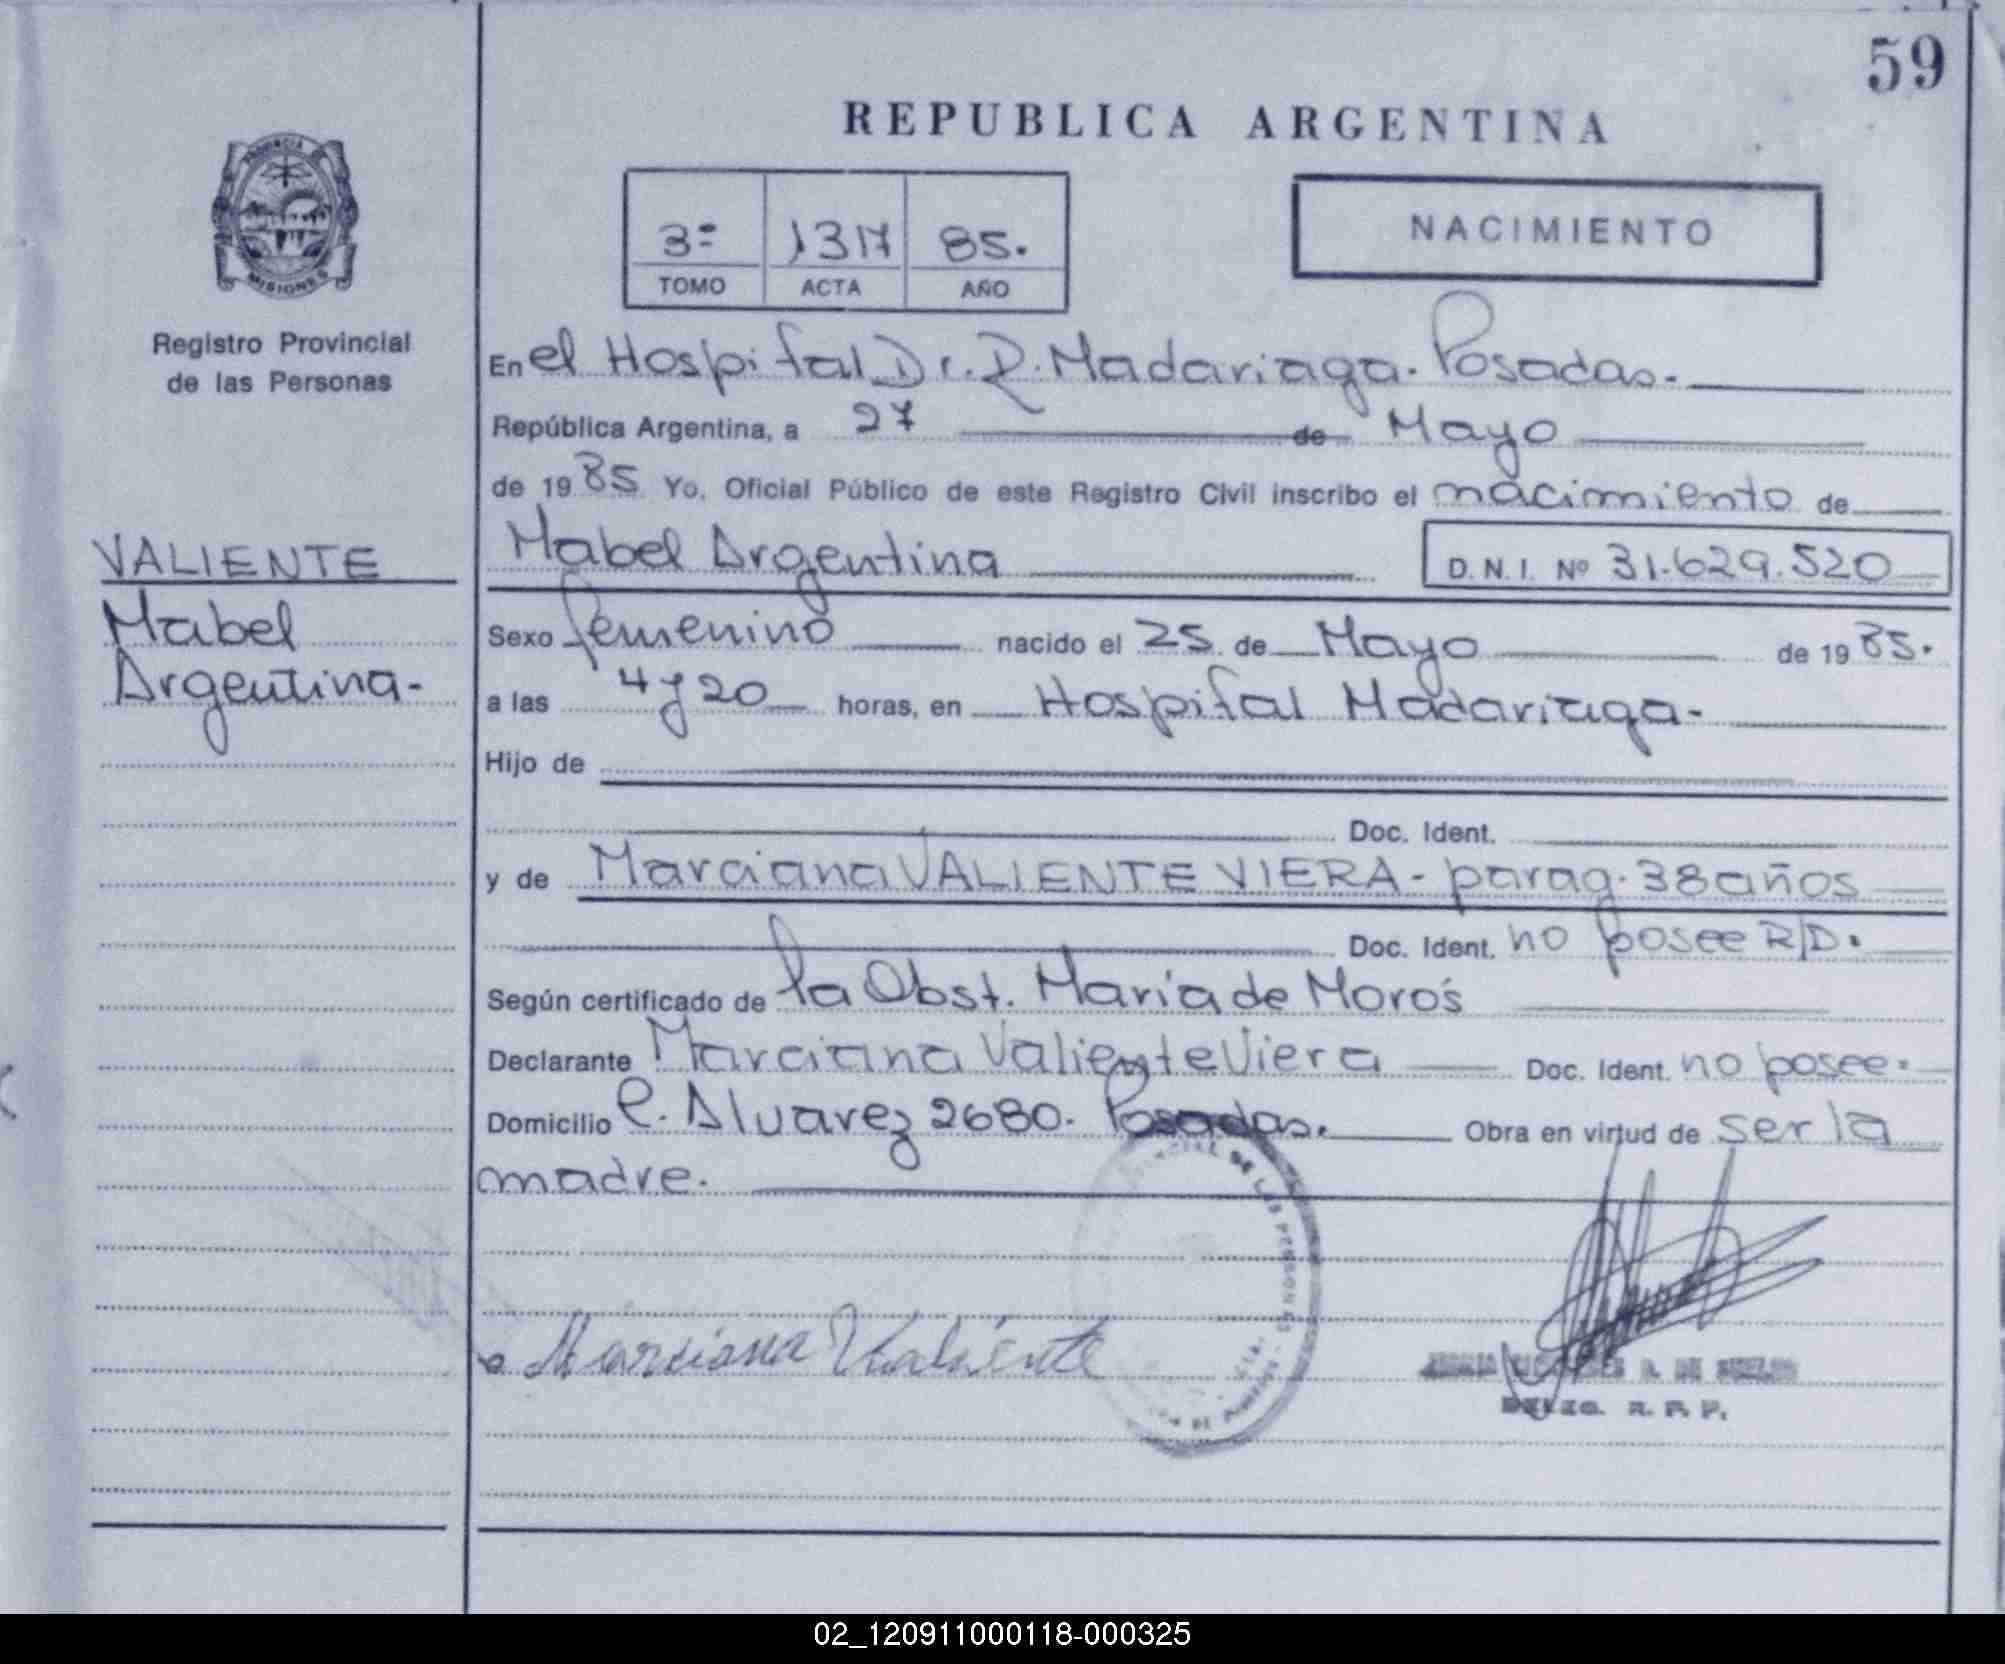 59
REPUBLICA ARGENTINA
PROVINCIA
MISIONES
Registro Provincial
de las Personas
3º 1317 85.
TOMO ACTA AÑO
NACIMIENTO
En el Hospital Dr. R. Madariaga. Posadas.
República Argentina, a 27 de Mayo
de 1985 Yo, Oficial Público de este Registro Civil inscribo el nacimiento de
VALIENTE
Mabel
Argentina.
Mabel Argentina D.N.I. Nº 31.629.520
Sexo femenino nacido el 25 de Mayo de 1985.
a las 4 y 20 horas, en Hospital Madariaga.
Hijo de
Doc. Ident.
y de Marciana VALIENTE VIERA - parag. 38 años
Doc. Ident. no posee R/D.
Según certificado de la Obst. María de Morós
Declarante Marciana Valiente Viera Doc. Ident. no posee.
Domicilio C. Alvarez 2680. Posadas. Obra en virtud de ser la
madre.
DE LAS PERSONAS
Marciana Valiente
DELEG. R. P. P.
02_120911000118-000325